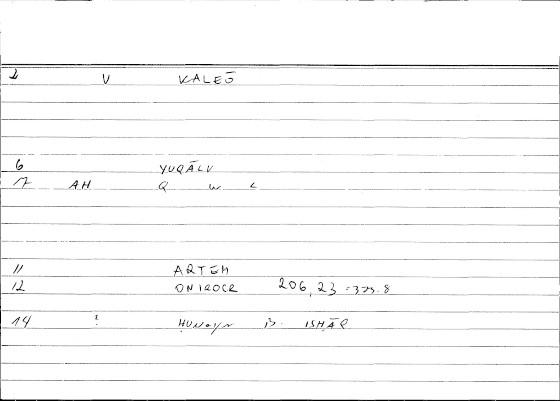 2 V KALEŌ
6 YUQĀLU
7 AH Q W L
11 ARTEM
12 ONIROCR 206,23 = 375.8
14 ? ḤUNAYN B. ISḤĀQ